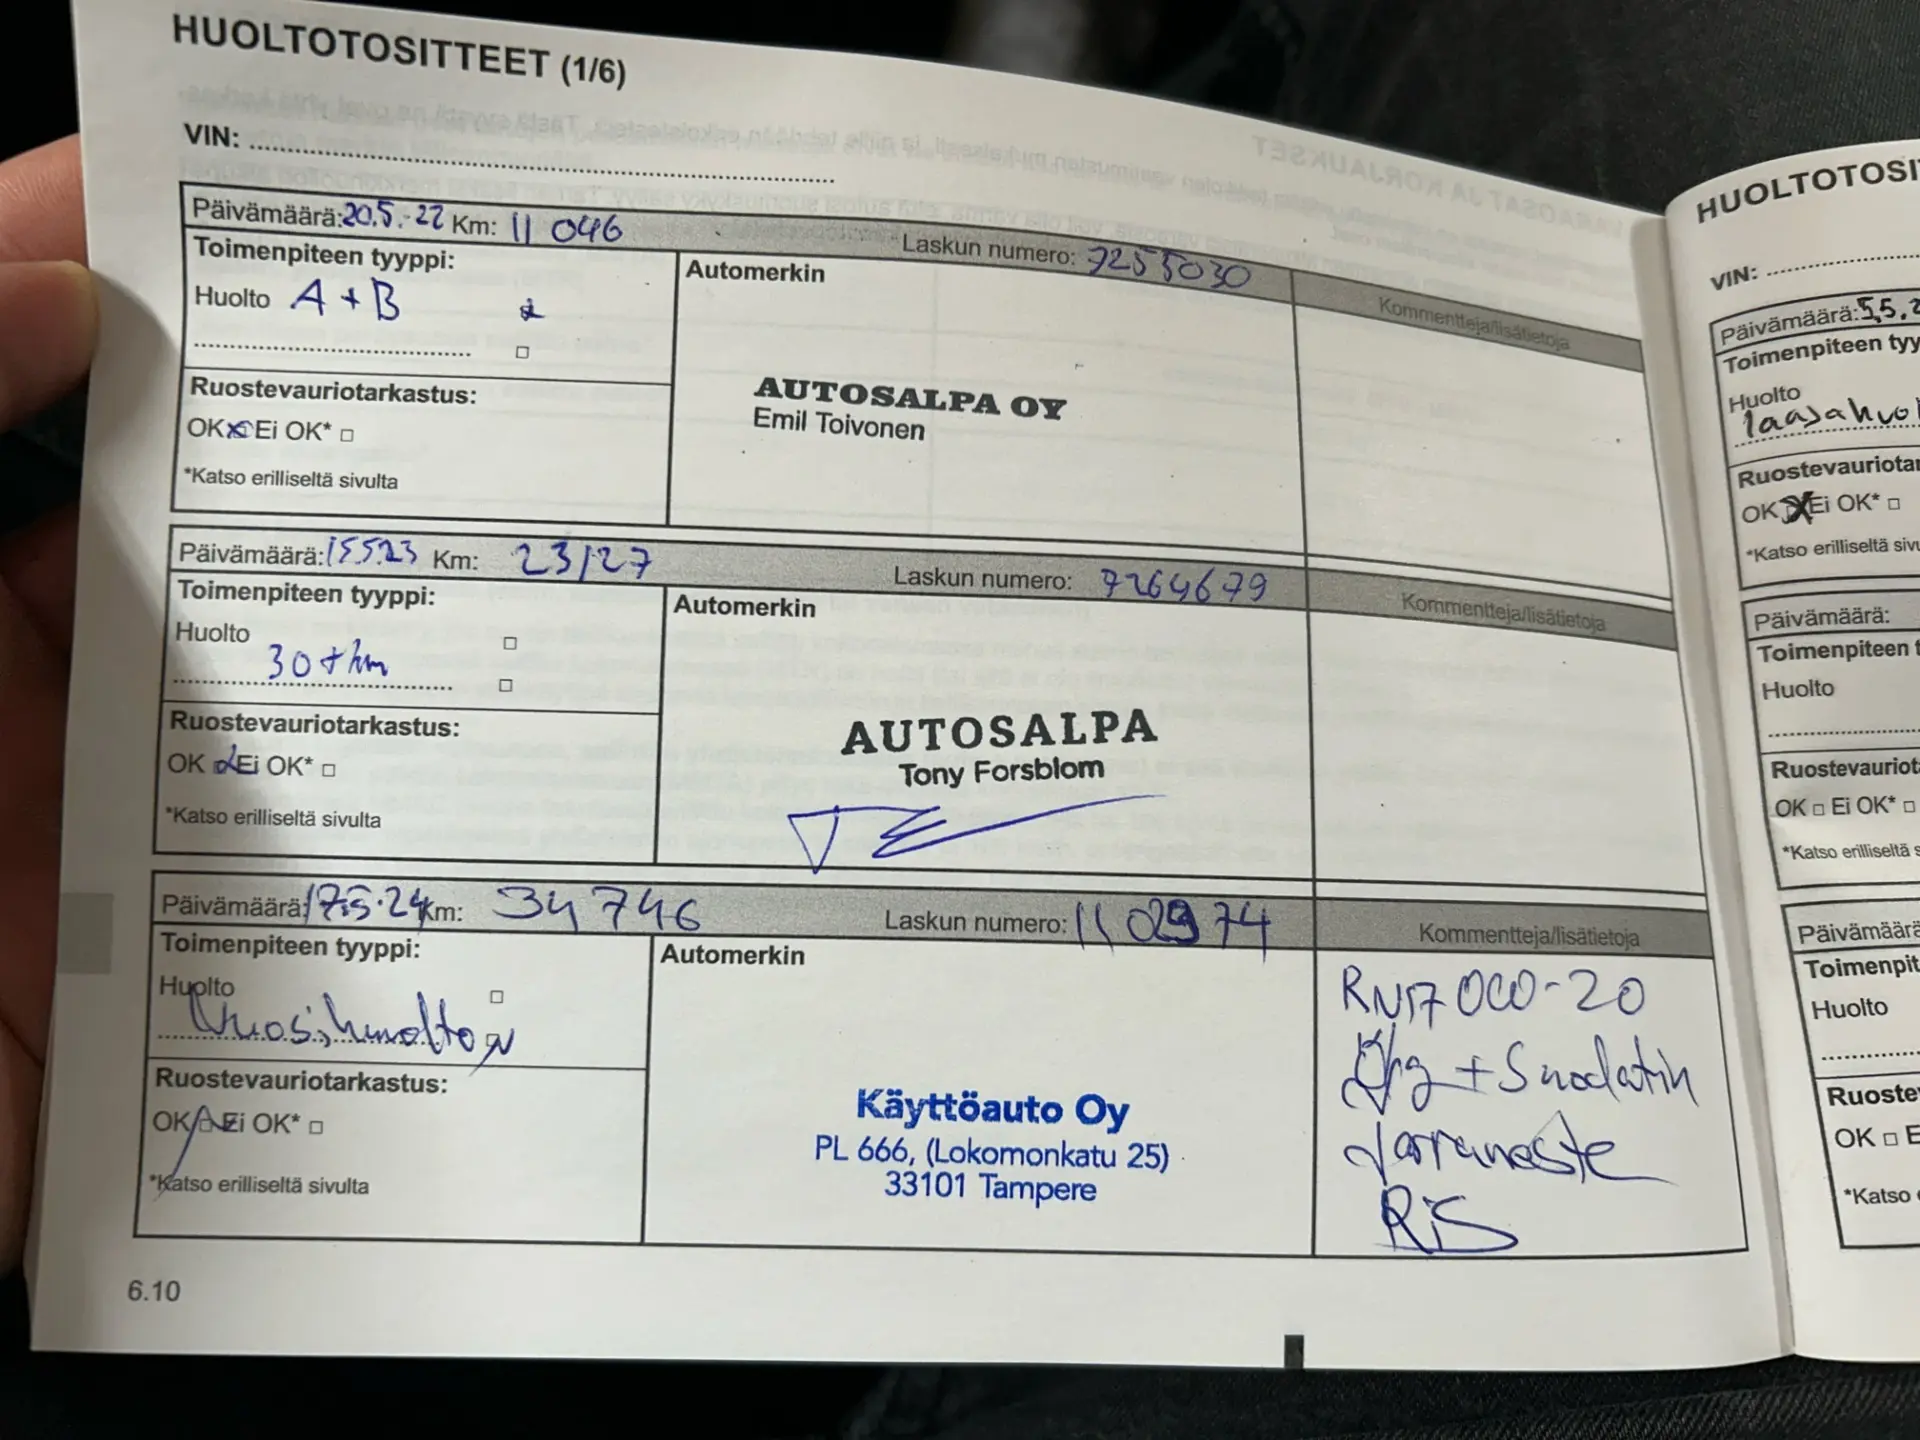 HUOLTOTOSITTEET (1/6)
VIN:
Päivämäärä: 20.5.-22 Km: 11 046 Laskun numero: 7255030
Toimenpiteen tyyppi:
Huolto A + B
Ruostevauriotarkastus:
OK Ei OK*
*Katso erilliseltä sivulta
Automerkin
AUTOSALPA OY
Emil Toivonen
Kommentteja/lisätietoja
Päivämäärä: 15.5.23 Km: 23127 Laskun numero: 7264679
Toimenpiteen tyyppi:
Huolto
30 tkm
Ruostevauriotarkastus:
OK Ei OK*
*Katso erilliseltä sivulta
Automerkin
AUTOSALPA
Tony Forsblom
Kommentteja/lisätietoja
Päivämäärä: 17.5.24 Km: 34 746 Laskun numero: 1102974
Toimenpiteen tyyppi:
Huolto
Vuosihuolto
Ruostevauriotarkastus:
OK Ei OK*
*Katso erilliseltä sivulta
Automerkin
Käyttöauto Oy
PL 666, (Lokomonkatu 25)
33101 Tampere
Kommentteja/lisätietoja
RN17 000-20
+ Suodatin
Jarruneste
RiS
6.10
HUOLTOTOSI
VIN:
Päivämäärä: 5.5.2
Toimenpiteen tyy
Huolto
laajahuol
Ruostevauriotar
OK Ei OK*
*Katso erilliseltä sivu
Päivämäärä:
Toimenpiteen t
Huolto
Ruostevauriot
OK Ei OK*
*Katso erilliseltä s
Päivämäärä
Toimenpit
Huolto
Ruoste
OK E
*Katso